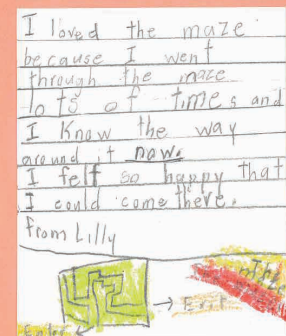 I loved the maze
because I went
through the maze
lots of times and
I know the way
around it now.
I felt so happy that
I could come there.
from Lilly
Enter
→ Exit